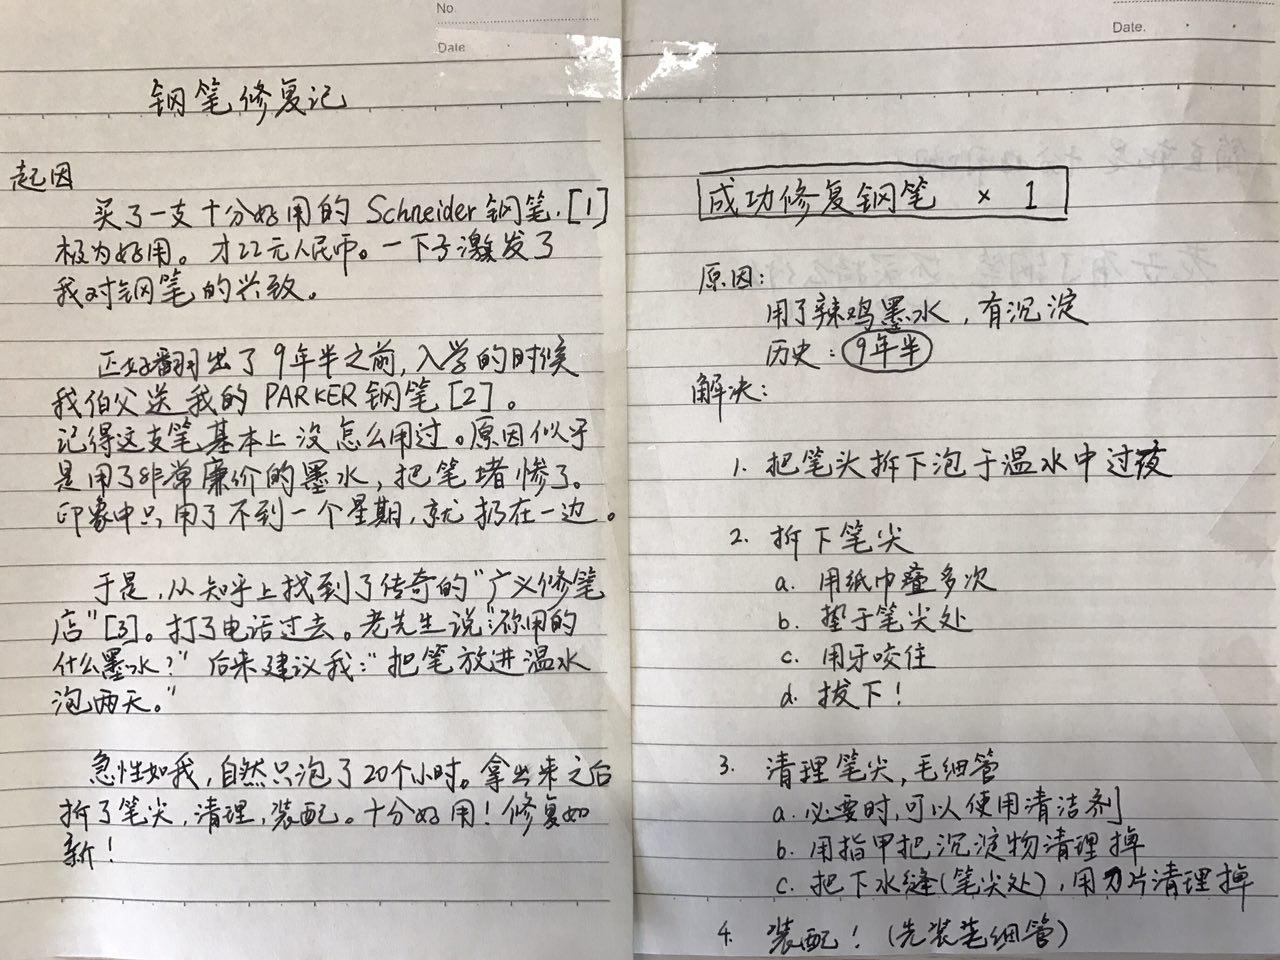 No.
Date
钢笔修复记
起因
买了一支十分好用的 Schneider 钢笔.[1]
极为好用。才22元人民币。一下子激发了
我对钢笔的兴致。
正好翻出了9年半之前,入学的时候
我伯父送我的 PARKER 钢笔[2]。
记得这支笔基本上没怎么用过。原因似乎
是用了非常廉价的墨水,把笔堵惨了。
印象中只用了不到一个星期,就扔在一边。
于是,从知乎上找到了传奇的"广义修笔
店"[3]。打了电话过去。老先生说:"你用的
什么墨水?"后来建议我:"把笔放进温水
泡两天。"
急性如我,自然只泡了20个小时。拿出来之后
拆了笔尖,清理,装配。十分好用!修复如
新!
Date.
成功修复钢笔 × 1
原因:
用了辣鸡墨水,有沉淀
历史:9年半
解决:
1. 把笔头拆下泡于温水中过夜
2. 拆下笔尖
a. 用纸巾叠多次
b. 垫于笔尖处
c. 用牙咬住
d. 拔下!
3. 清理笔尖,毛细管
a. 必要时,可以使用清洁剂
b. 用指甲把沉淀物清理掉
c. 把下水缝(笔尖处),用刀片清理掉
4. 装配!(先装毛细管)